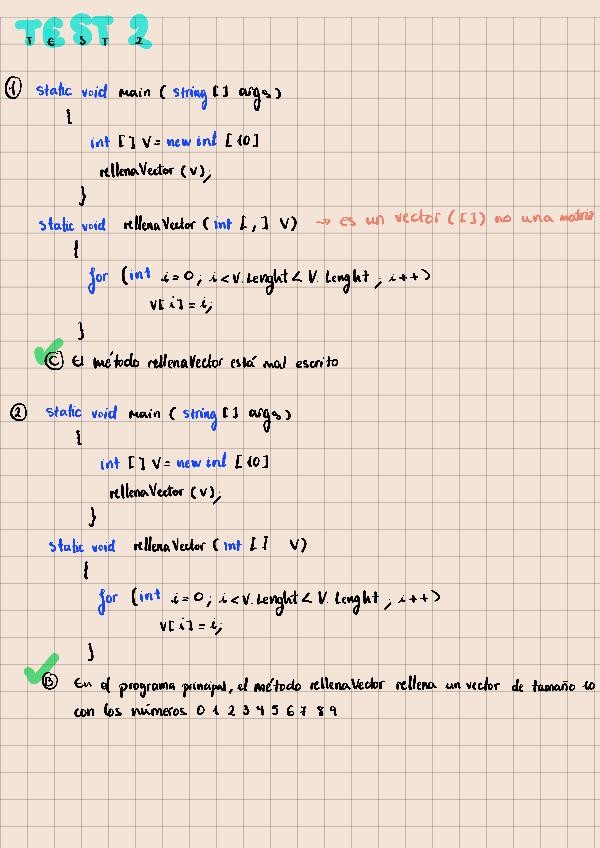 TEST 2
① static void main ( string [] args)
{
int [] V = new int [10]
rellenaVector (v);
}
static void rellenaVector ( int [,] V) → es un vector ([]) no una matriz
{
for (int i=0; i<V.Lenght< V. Lenght ; i++)
v[i]=i;
}
Ⓒ El método rellenaVector está mal escrito
② static void main ( string [] args)
{
int [] V = new int [10]
rellenaVector (v);
}
static void rellenaVector ( int [] V)
{
for (int i=0; i<V.Lenght< V. Lenght ; i++)
v[i]=i;
}
Ⓑ En el programa principal, el método rellenaVector rellena un vector de tamaño 10
con los números 0 1 2 3 4 5 6 7 8 9